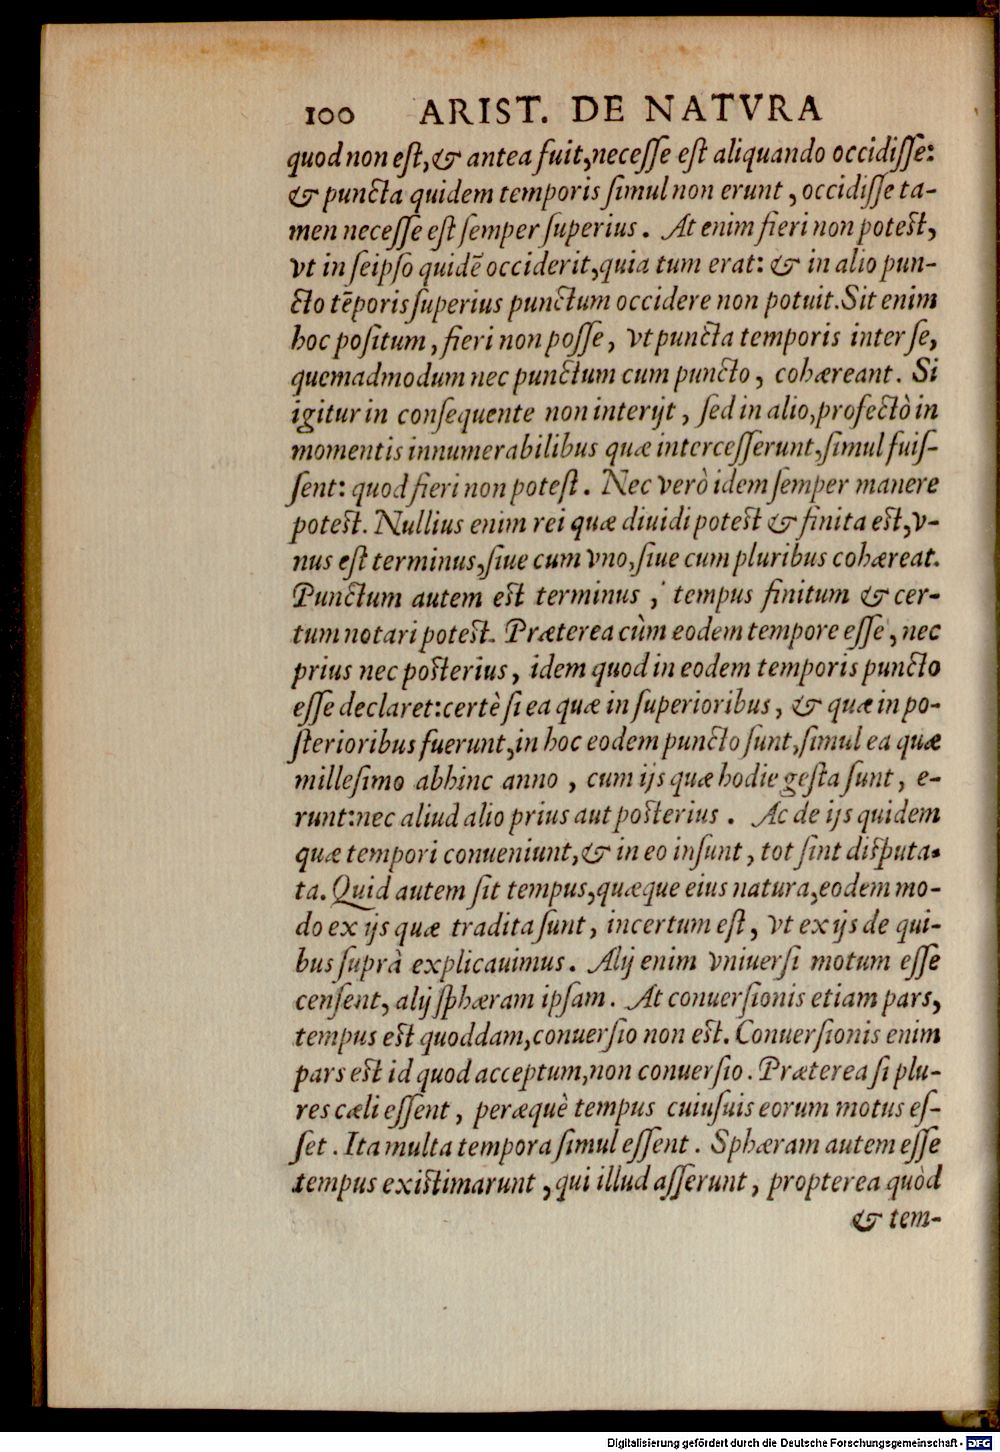 100 ARIST. DE NATVRA
quod non eſt, & antea fuit, neceſſe eſt aliquando occidiſſe:
& puncta quidem temporis ſimul non erunt, occidiſſe ta-
men neceſſe eſt ſemper ſuperius. At enim fieri non poteſt,
vt in ſeipſo quidē occiderit, quia tum erat: & in alio pun-
cto tēporis ſuperius punctum occidere non potuit. Sit enim
hoc poſitum, fieri non poſſe, vt puncta temporis inter ſe,
quemadmodum nec punctum cum puncto, cohæreant. Si
igitur in conſequente non interijt, ſed in alio, profectò in
momentis innumerabilibus quæ interceſſerunt, ſimul fuiſ-
ſent: quod fieri non poteſt. Nec verò idem ſemper manere
poteſt. Nullius enim rei quæ diuidi poteſt & finita eſt, v-
nus eſt terminus, ſiue cum vno, ſiue cum pluribus cohæreat.
Punctum autem eſt terminus, tempus finitum & cer-
tum notari poteſt. Præterea cùm eodem tempore eſſe, nec
prius nec poſterius, idem quod in eodem temporis puncto
eſſe declaret: certè ſi ea quæ in ſuperioribus, & quæ in po-
ſterioribus fuerunt, in hoc eodem puncto ſunt, ſimul ea quæ
milleſimo abhinc anno, cum ijs quæ hodie geſta ſunt, e-
runt: nec aliud alio prius aut poſterius. Ac de ijs quidem
quæ tempori conueniunt, & in eo inſunt, tot ſint diſputa-
ta. Quid autem ſit tempus, quæque eius natura, eodem mo-
do ex ijs quæ tradita ſunt, incertum eſt, vt ex ijs de qui-
bus ſuprà explicauimus. Alij enim vniuerſi motum eſſe
cenſent, alij ſphæram ipſam. At conuerſionis etiam pars,
tempus eſt quoddam, conuerſio non eſt. Conuerſionis enim
pars eſt id quod acceptum, non conuerſio. Præterea ſi plu-
res cæli eſſent, peræquè tempus cuiuſuis eorum motus eſ-
ſet. Ita multa tempora ſimul eſſent. Sphæram autem eſſe
tempus exiſtimarunt, qui illud aſſerunt, propterea quòd
& tem-
Digitalisierung gefördert durch die Deutsche Forschungsgemeinschaft - DFG